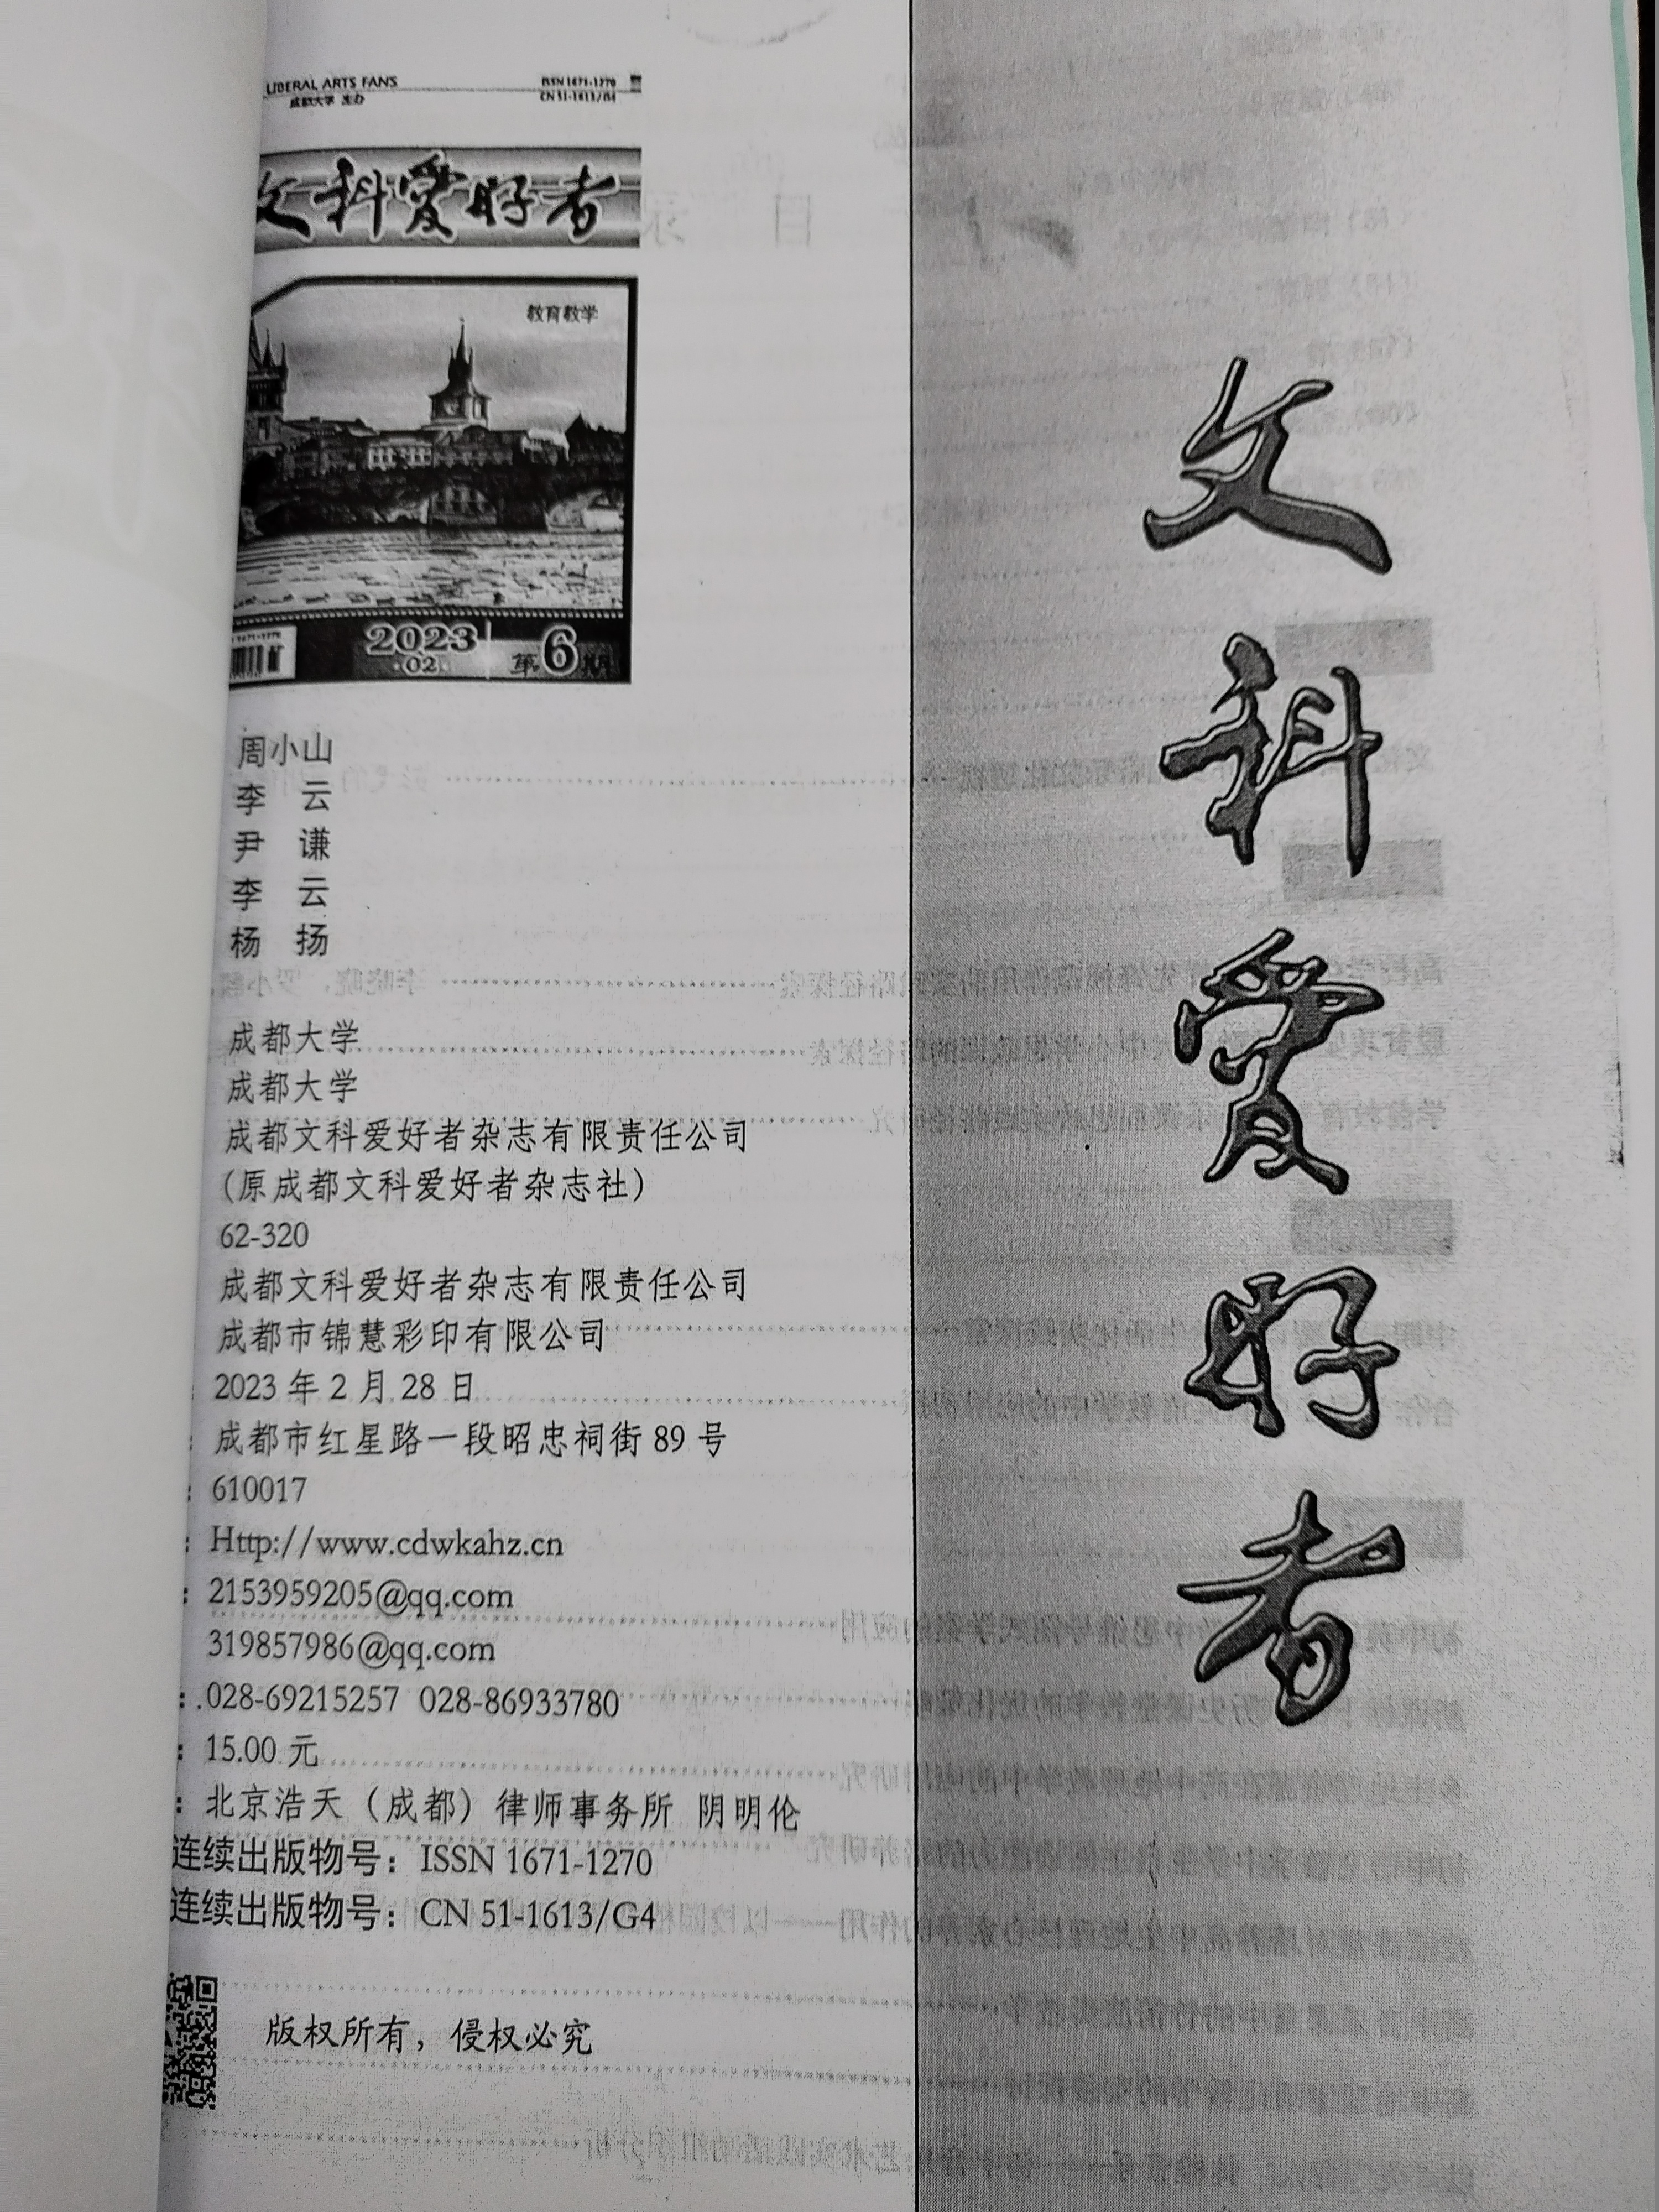 LIBERAL ARTS FANS
成都大学 主办
ISSN 1671-1270
CN 51-1613/G4
文科爱好者
教育教学
2023
·02·
第6期
周小山
李 云
尹 谦
李 云
杨 扬
成都大学
成都大学
成都文科爱好者杂志有限责任公司
(原成都文科爱好者杂志社)
62-320
成都文科爱好者杂志有限责任公司
成都市锦慧彩印有限公司
: 2023 年 2 月 28 日
: 成都市红星路一段昭忠祠街 89 号
: 610017
: Http://www.cdwkahz.cn
: 2153959205@qq.com
319857986@qq.com
: 028-69215257 028-86933780
: 15.00 元
: 北京浩天（成都）律师事务所 阴明伦
连续出版物号：ISSN 1671-1270
连续出版物号：CN 51-1613/G4
版权所有，侵权必究
文科爱好者